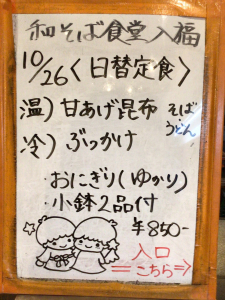 和そば食堂入福
10/26〈日替定食〉
温)甘あげ昆布 そば
うどん
冷)ぶっかけ
・おにぎり(ゆかり)
・小鉢2品付
¥850-
入口
=こちら⇒